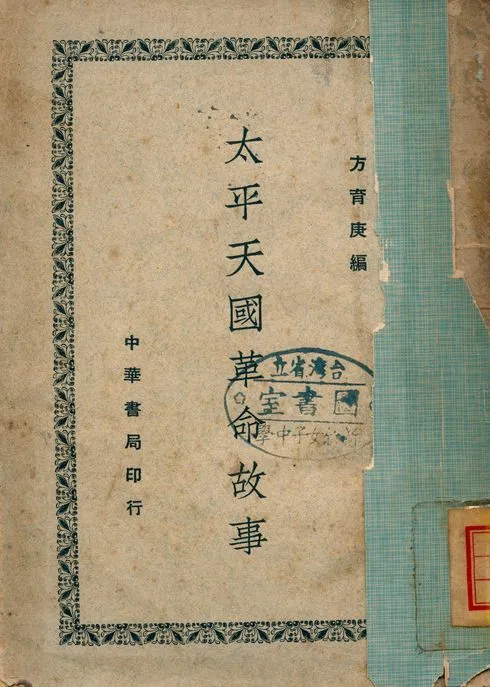 方育庚編
太平天國革命故事
中華書局印行
台灣省立
圖書室
女子中學